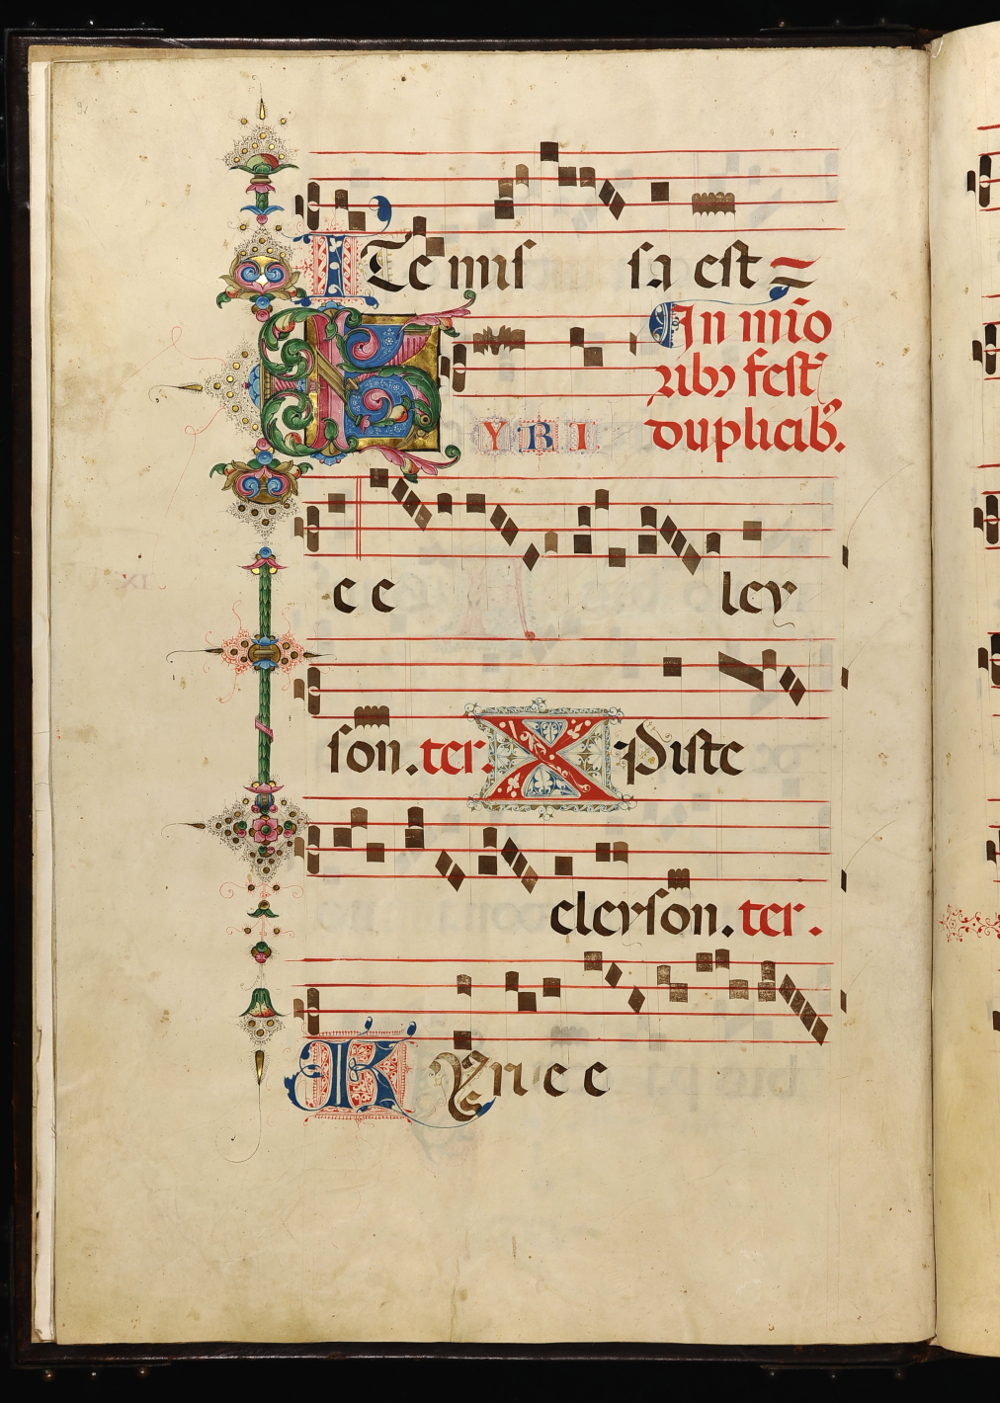 ITe mis sa est
In mio
ribꝫ fest
duplicib9.
KYRI
e e ley
son. ter. Xpiste
eleyson. ter.
Kyri e e